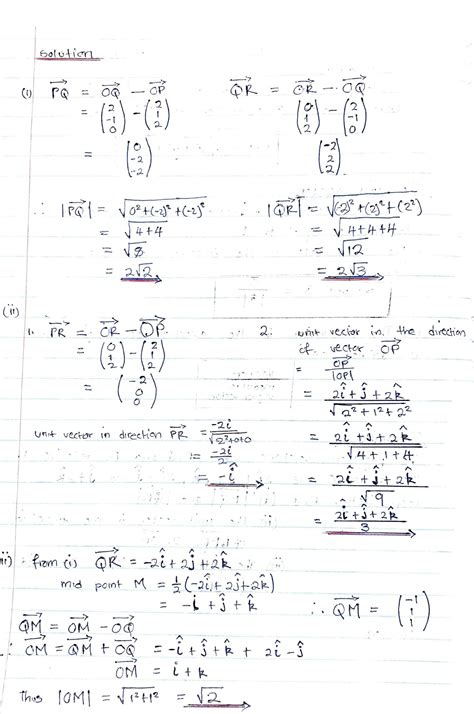 solution
(i) \vec{PQ} = \vec{OQ} - \vec{OP}
= \begin{pmatrix} 2 \\ -1 \\ 0 \end{pmatrix} - \begin{pmatrix} 2 \\ 1 \\ 2 \end{pmatrix}
= \begin{pmatrix} 0 \\ -2 \\ -2 \end{pmatrix}
\vec{QR} = \vec{OR} - \vec{OQ}
\begin{pmatrix} 0 \\ 1 \\ 2 \end{pmatrix} - \begin{pmatrix} 2 \\ -1 \\ 0 \end{pmatrix}
\begin{pmatrix} -2 \\ 2 \\ 2 \end{pmatrix}
∴ |\vec{PQ}| = √(0² + (-2)² + (-2)²)
= √(4+4)
= √8
= 2√2
∴ |\vec{QR}| = √((-2)² + (2)² + (2²))
= √(4+4+4)
= √12
= 2√3
(ii)
1. \vec{PR} = \vec{OR} - \vec{OP}
= \begin{pmatrix} 0 \\ 1 \\ 2 \end{pmatrix} - \begin{pmatrix} 2 \\ 1 \\ 2 \end{pmatrix}
= \begin{pmatrix} -2 \\ 0 \\ 0 \end{pmatrix}
unit vector in direction \vec{PR} = \frac{-2i}{√(2²+0+0)}
= \frac{-2i}{2}
= -î
2. unit vector in the direction
of vector \vec{OP}
= \frac{\vec{OP}}{|OP|}
= \frac{2î + ĵ + 2k̂}{√(2² + 1² + 2²)}
= \frac{2î + ĵ + 2k̂}{√(4+1+4)}
= \frac{2î + ĵ + 2k̂}{√9}
= \frac{2î + ĵ + 2k̂}{3}
iii) from (i) \vec{QR} = -2î + 2ĵ + 2k̂
mid point M = ½(-2î + 2ĵ + 2k̂)
= -î + ĵ + k̂
∴ \vec{QM} = \begin{pmatrix} -1 \\ 1 \\ 1 \end{pmatrix}
\vec{QM} = \vec{OM} - \vec{OQ}
∴ \vec{OM} = \vec{QM} + \vec{OQ} = -î + ĵ + k̂ + 2î - ĵ
\vec{OM} = i + k
Thus |OM| = √(1²+1²) = √2